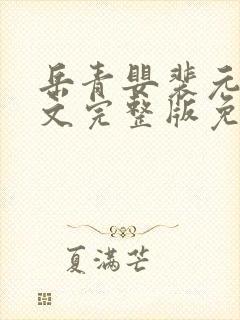 岳青婴裴元
文完整版免
夏满芒